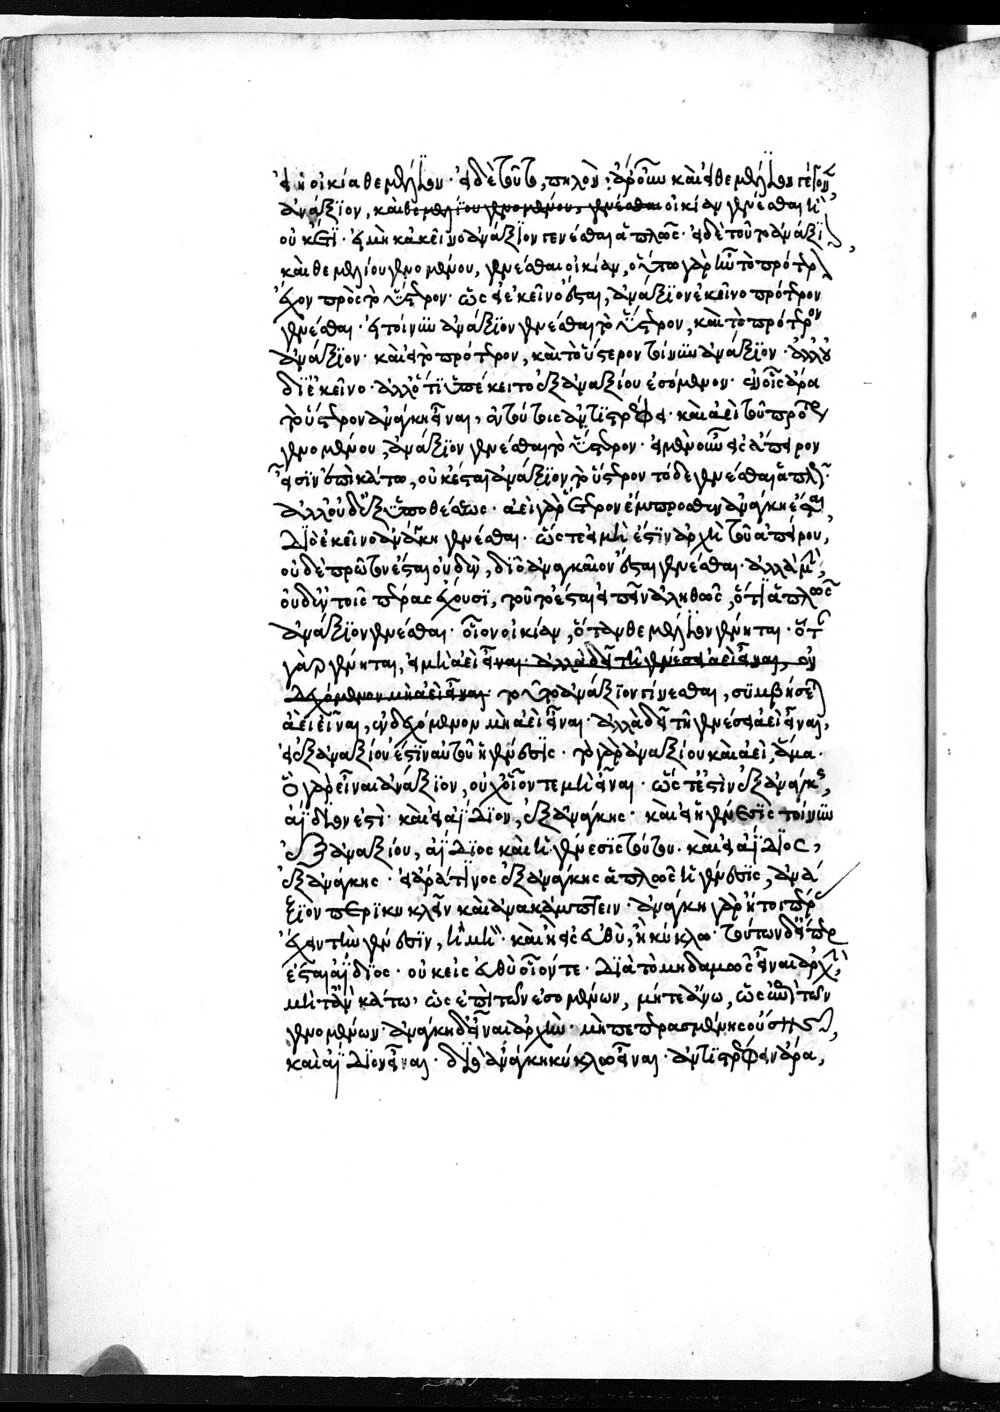 εἰ οἰκία θεμέλιον· εἰ δὲ τοῦτο, πηλόν· ἆρ' οὖν καὶ εἰ θεμέλιον γέγονεν,
ἀνάγκη οἰκίαν γενέσθαι ἢ
οὐκέτι· εἰ μὴ κἀκεῖνο ἀναγκαῖον γενέσθαι ἁπλῶς· εἰ δὲ τοῦτο ἀναγκαῖον
καὶ θεμελίου γενομένου, γενέσθαι οἰκίαν, οὕτω γὰρ ἦν τὸ πρότερον
ἔχον πρὸς τὸ ὕστερον· ὥστ' εἰ ἐκεῖνο ἔσται, ἀναγκαῖον ἐκεῖνο πρότερον
γενέσθαι· εἰ τοίνυν ἀναγκαῖον γενέσθαι τὸ ὕστερον, καὶ τὸ πρότερον
ἀναγκαῖον· καὶ εἰ τὸ πρότερον, καὶ τὸ ὕστερον τοίνυν ἀναγκαῖον· ἀλλ' οὐ
δι' ἐκεῖνο· ἀλλ' ὅτι ὑπέκειτο ἐξ ἀναγκαίου ἐσόμενον· ἐν οἷς ἄρα
τὸ ὕστερον ἀνάγκη εἶναι, ἐν τούτοις ἀντιστρέφει· καὶ ἀεὶ τοῦ προτέρου
γενομένου, ἀναγκαῖον γενέσθαι τὸ ὕστερον· εἰ μὲν οὖν εἰς ἄπειρον
εἶσιν ἐπὶ κάτω, οὐκ ἔσται ἀναγκαῖον τὸ ὕστερον τόδε γενέσθαι ἁπλῶς·
ἀλλ' οὐδ' ἐξ ὑποθέσεως· ἀεὶ γὰρ ἕτερον ἔμπροσθεν ἀνάγκη ἔσται,
διὸ ἐκεῖνο ἀνάγκη γενέσθαι· ὥστε εἰ μή ἐστιν ἀρχὴ τοῦ ἀπείρου,
οὐδὲ πρῶτον ἔσται οὐδὲν, διὸ ἀναγκαῖον ἔσται γενέσθαι· ἀλλὰ μὴν
οὐδ' ἐν τοῖς πέρας ἔχουσι, τοῦτ' ἔσται εἰπεῖν ἀληθῶς, ὅτι ἁπλῶς
ἀναγκαῖον γενέσθαι· οἷον οἰκίαν, ὅταν θεμέλιον γένηται· ὅταν
γὰρ γένηται, εἰ μὴ ἀεὶ εἶναι
τοῦτο ἀναγκαῖον γίνεσθαι, συμβήσεται
ἀεὶ εἶναι, ἐνδεχόμενον μὴ ἀεὶ εἶναι· ἀλλὰ δεῖ τῇ γενέσει ἀεὶ εἶναι,
εἰ ἐξ ἀναγκαίου ἐστὶν αὐτοῦ ἡ γένεσις· τὸ γὰρ ἀναγκαίου καὶ ἀεὶ, ἅμα·
ὃ γὰρ εἶναι ἀναγκαῖον, οὐχ οἷόν τε μὴ εἶναι· ὥστ' εἰ ἔστιν ἐξ ἀνάγκης,
ἀΐδιόν ἐστι· καὶ εἰ ἀΐδιον, ἐξ ἀνάγκης· καὶ εἰ ἡ γένεσις τοίνυν
ἐξ ἀναγκαίου, ἀΐδιος καὶ ἡ γένεσις τούτου· καὶ εἰ ἀΐδιος,
ἐξ ἀνάγκης· εἰ ἄρα τινος ἐξ ἀνάγκης ἁπλῶς ἡ γένεσις, ἀναγ-
καῖον πέριξ κυκλεῖν καὶ ἀνακάμπτειν· ἀνάγκη γὰρ ἤτοι πέρας
ἔχειν τὴν γένεσιν, ἢ μή· καὶ ἢ εἰς εὐθὺ, ἢ κύκλῳ· τούτων δ' εἴπερ
ἔσται ἀΐδιος· οὐκ εἰς εὐθὺ οἷόν τε· διὰ τὸ μηδαμῶς εἶναι ἀρχὴν,
μήτ' ἂν κάτω, ὡς ἐπὶ τῶν ἐσομένων, μήτε ἄνω, ὡς ἐπὶ τῶν
γενομένων· ἀνάγκη δ' εἶναι ἀρχὴν· μὴ πεπερασμένης οὔσης,
καὶ ἀΐδιον εἶναι· διὸ ἀνάγκη κύκλῳ εἶναι· ἀντιστρέφειν ἄρα,